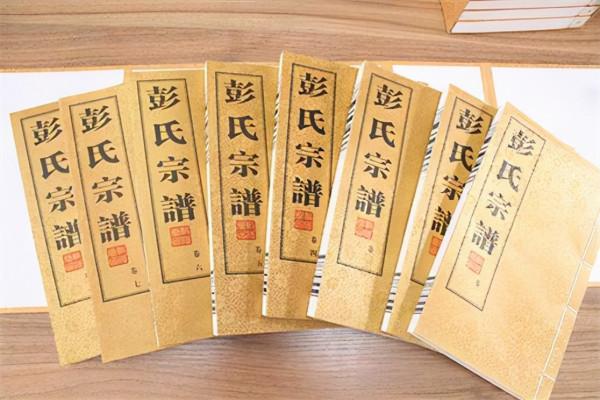 彭氏宗譜
彭氏宗譜
卷七
彭氏宗譜
卷六
彭氏宗譜
卷
彭氏宗譜
卷四
彭氏宗譜
卷
彭氏宗譜
彭氏宗譜
卷